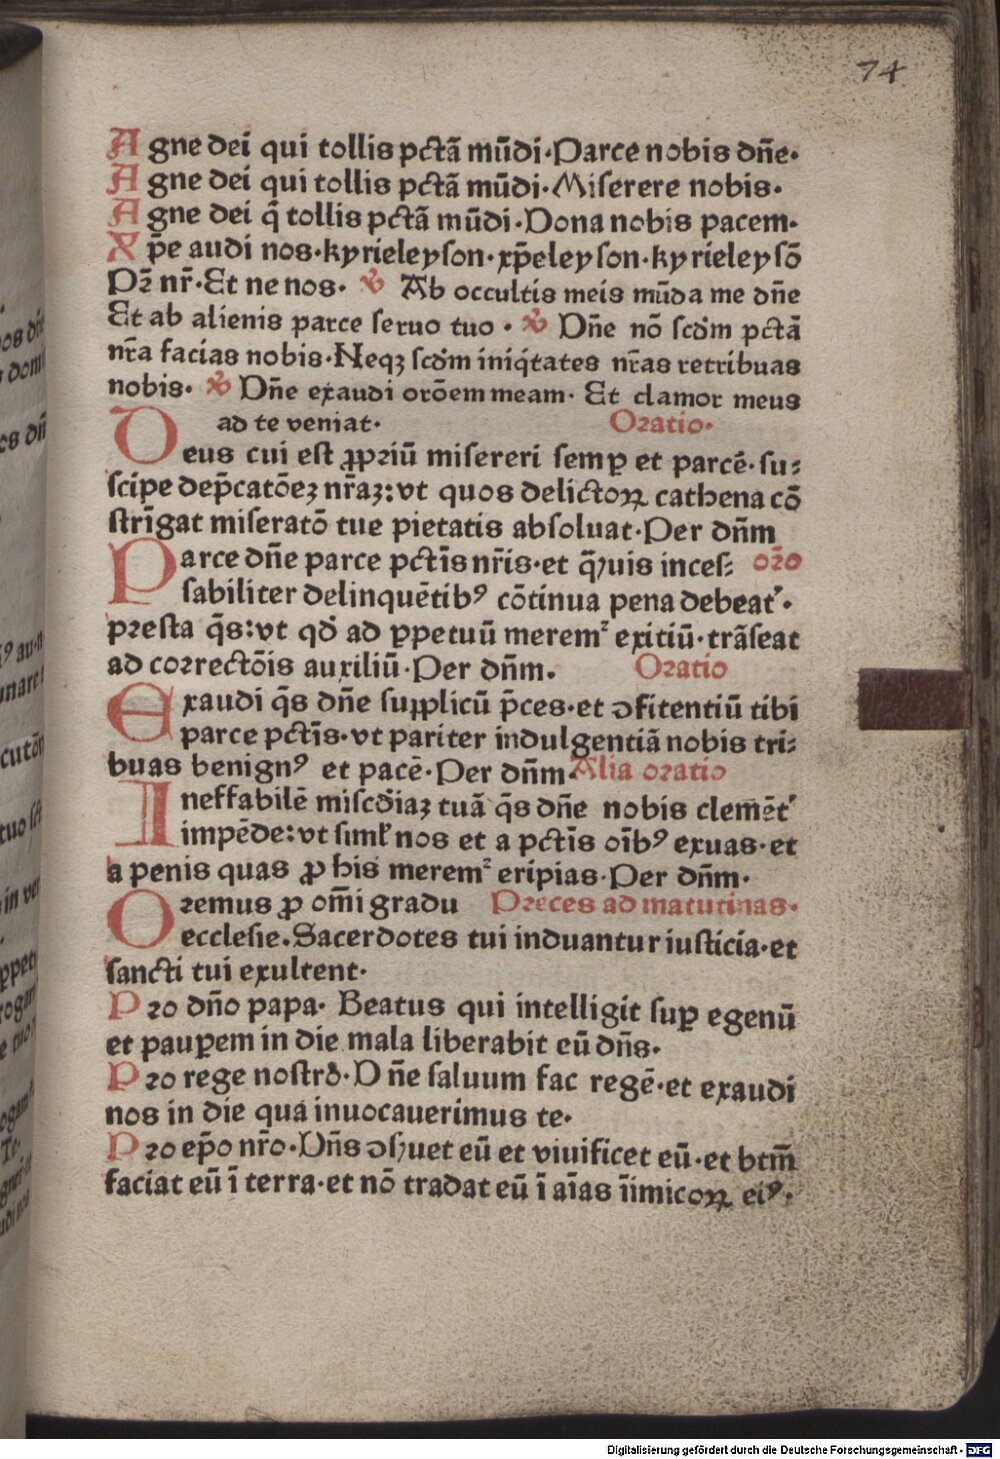 74
Agne dei qui tollis pctā mūdi·Parce nobis dn̄e·
Agne dei qui tollis pctā mūdi·Miserere nobis·
Agne dei q̄ tollis pctā mūdi·Dona nobis pacem·
Xp̄e audi nos·kyrieleyson·xp̄eleyson·kyrieleysō
Pꝛ̄ nr̄·Et ne nos· ℣ Ab occultis meis mūda me dn̄e
Et ab alienis parce seruo tuo · ℣ Dn̄e nō scd̄m pctā
nr̄a facias nobis·Neqꝫ scd̄m iniq̄tates nr̄as retribuas
nobis· ℣ Dn̄e exaudi orōem meam· Et clamor meus
ad te veniat· Oꝛatio·
Deus cui est ꝓpꝛiū misereri semꝑ et parcē·su⸗
scipe dep̄catōeꝫ nr̄aꝫ:vt quos delictoꝝ cathena cō
strīgat miseratō tue pietatis absoluat·Per dn̄m
Parce dn̄e parce pctīs nr̄is·et q̄ꝫuis inces⸗ oꝛ̄o
sabiliter delinquētibꝰ cōtinua pena debeat᷑·
pꝛesta q̄s:vt qd̄ ad ꝑpetuū meremꝛ exitiū·trāseat
ad coꝛrectōis auxiliū·Per dn̄m. Oꝛatio
Exaudi q̄s dn̄e supplicū p̄ces·et ꝯfitentiū tibi
parce pctīs·vt pariter indulgentiā nobis tri⸗
buas benignꝰ et pacē·Per dn̄m· Alia oꝛatio
Ineffabilē miscd̄iaꝫ tuā q̄s dn̄e nobis clemēt᷑
impēde:vt siml̄ nos et a pctīs oībꝰ exuas·et
a penis quas ꝓ his meremꝛ eripias·Per dn̄m·
Oꝛemus ꝓ om̄i gradu Pꝛeces ad matutinas·
ecclesie.Sacerdotes tui induantur iusticia·et
sancti tui exultent·
Pꝛo dn̄o papa· Beatus qui intelligit suꝑ egenū
et pauꝑem in die mala liberabit eū dn̄s·
Pꝛo rege nostro·Dn̄e saluum fac regē·et exaudi
nos in die qua inuocauerimus te·
Pꝛo ep̄o nr̄o·Dn̄s ꝯẜuet eū et viuificet eū·et btm̄
faciat eū ī terra·et nō tradat eū ī aīas īimicoꝝ eiꝰ·
Digitalisierung gefördert durch die Deutsche Forschungsgemeinschaft · DFG